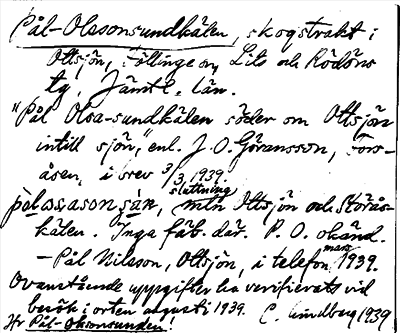 Pål-Olssonsundkälen, skogstrakt i
Ottsjön, Föllinge sn, Lits och Rödöns
tg, Jämtl. län.
"Pål Olsa-sundkälen söder om Ottsjön
intill sjön," enl. J. O. Göransson, Fors-
åsen, i brev 3/3 1939.
sluttning
mln Ottsjön och Storås-
kälen. Inga fäb. där. P. O. okänd.
mars
- Pål Nilsson, Ottsjön, i telefon 1939.
Ovanstående uppgifter ha verifierats vid
besök i orten augusti 1939. C. Lindberg 1939
Hr Pål-Olsonsunden!